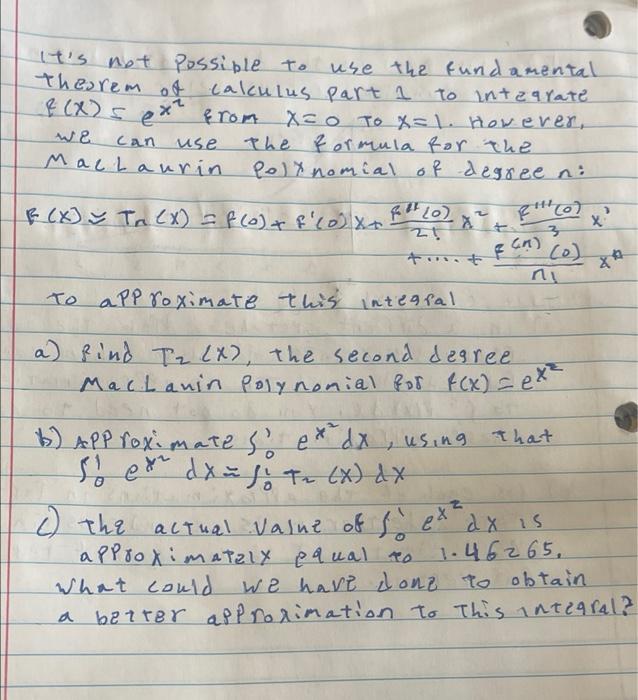 It's not possible to use the fundamental
theorem of calculus part 1 to integrate
f(x) = e^{x^2} from x=0 to x=1. However,
we can use the formula for the
MacLaurin Polynomial of degree n:
f(x) ≈ Tn(x) = f(0) + f'(0)x + \frac{f''(0)}{2!} x^2 + \frac{f'''(0)}{3} x^3
+ .... + \frac{f^{(n)}(0)}{n!} x^n
To approximate this integral
a) Find T_2(x), the second degree
MacLauin Polynomial for f(x) = e^{x^2}
b) Approximate ∫_0^1 e^{x^2} dx, using that
∫_0^1 e^{x^2} dx ≈ ∫_0^1 T_2(x) dx
c) The actual value of ∫_0^1 e^{x^2} dx is
approximately equal to 1.46265.
What could we have done to obtain
a better approximation to this integral?